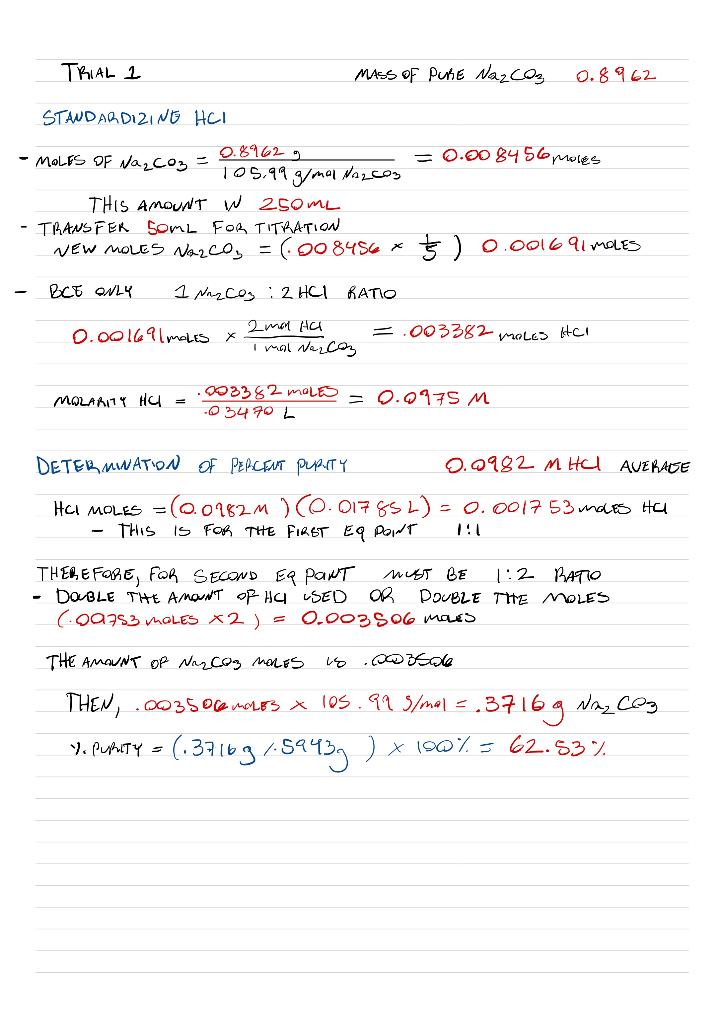 TRIAL 1 MASS OF PURE Na2CO3 0.8962
STANDARDIZING HCl
- MOLES OF Na2CO3 = 0.8962 g / 105.99 g/mol Na2CO3 = 0.008456 moles
THIS AMOUNT IN 250mL
- TRANSFER 50mL FOR TITRATION
NEW MOLES Na2CO3 = (.008456 × 1/5) 0.001691 MOLES
- BCE ONLY 1 Na2CO3 : 2 HCl RATIO
0.001691 moles × 2 mol HCl / 1 mol Na2CO3 = .003382 moles HCl
MOLARITY HCl = .003382 moles / .03470 L = 0.0975 M
DETERMINATION OF PERCENT PURITY 0.0982 M HCl AVERAGE
HCl MOLES = (0.0982M)(0.01785L) = 0.001753 moles HCl
- THIS IS FOR THE FIRST EQ POINT 1:1
THEREFORE, FOR SECOND EQ POINT MUST BE 1:2 RATIO
- DOUBLE THE AMOUNT OF HCl USED OR DOUBLE THE MOLES
(.001753 MOLES × 2) = 0.003506 moles
THE AMOUNT OF Na2CO3 MOLES IS .003506
THEN, .003506 moles × 105.99 g/mol = .3716 g Na2CO3
% PURITY = (.3716g / .5943g) × 100% = 62.53%